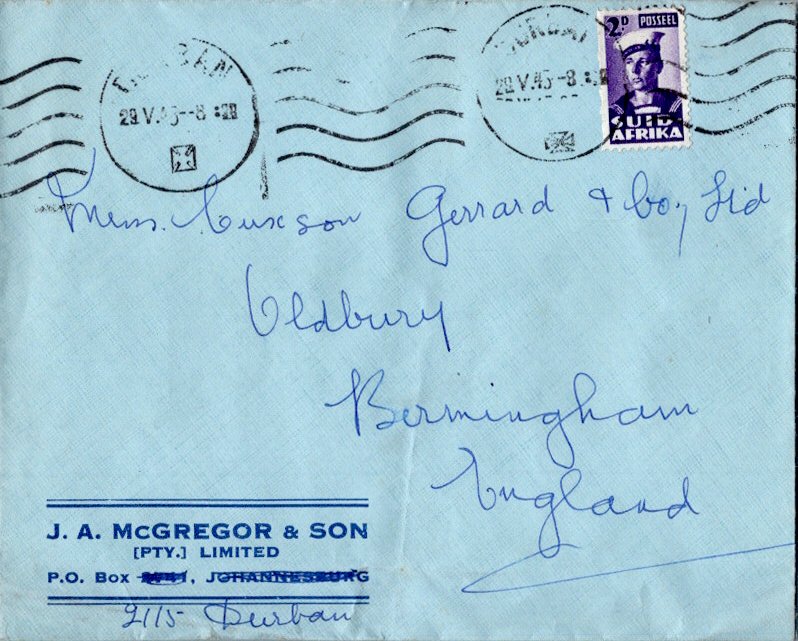 DURBAN
29 V.45--8
DURBAN
29 V.45-8
2D POSSEEL
SUID-
AFRIKA
Messrs. Cuxson Gerrard & Co., Ltd
Oldbury
Birmingham
England
J. A. McGREGOR & SON
[PTY.] LIMITED
P.O. Box , JOHANNESBURG
2115 Durban